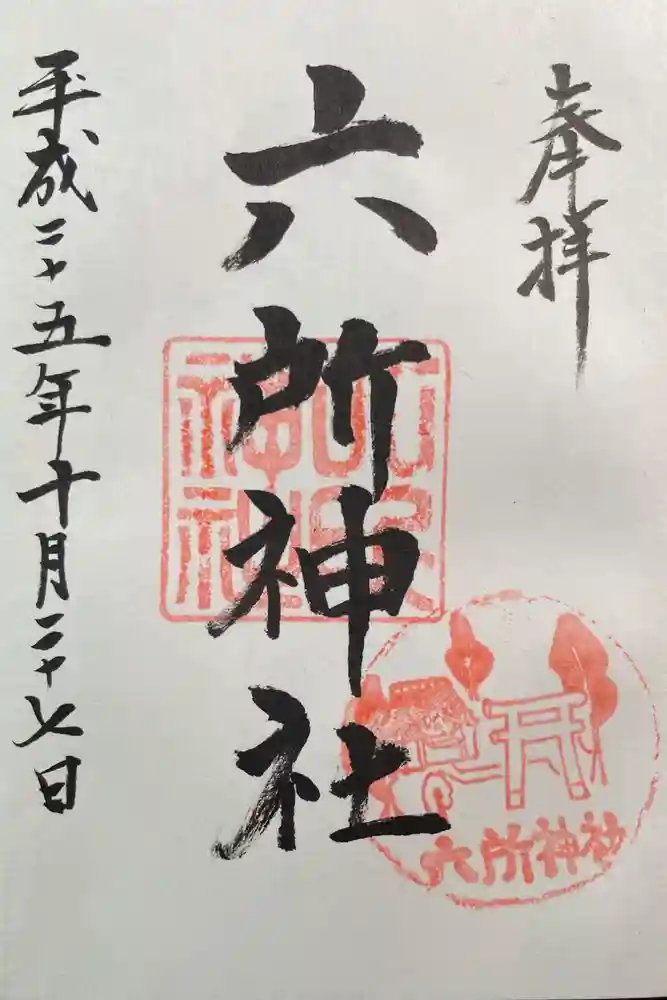 奉拝
六所神社
平成二十五年十月二十七日
六所神社